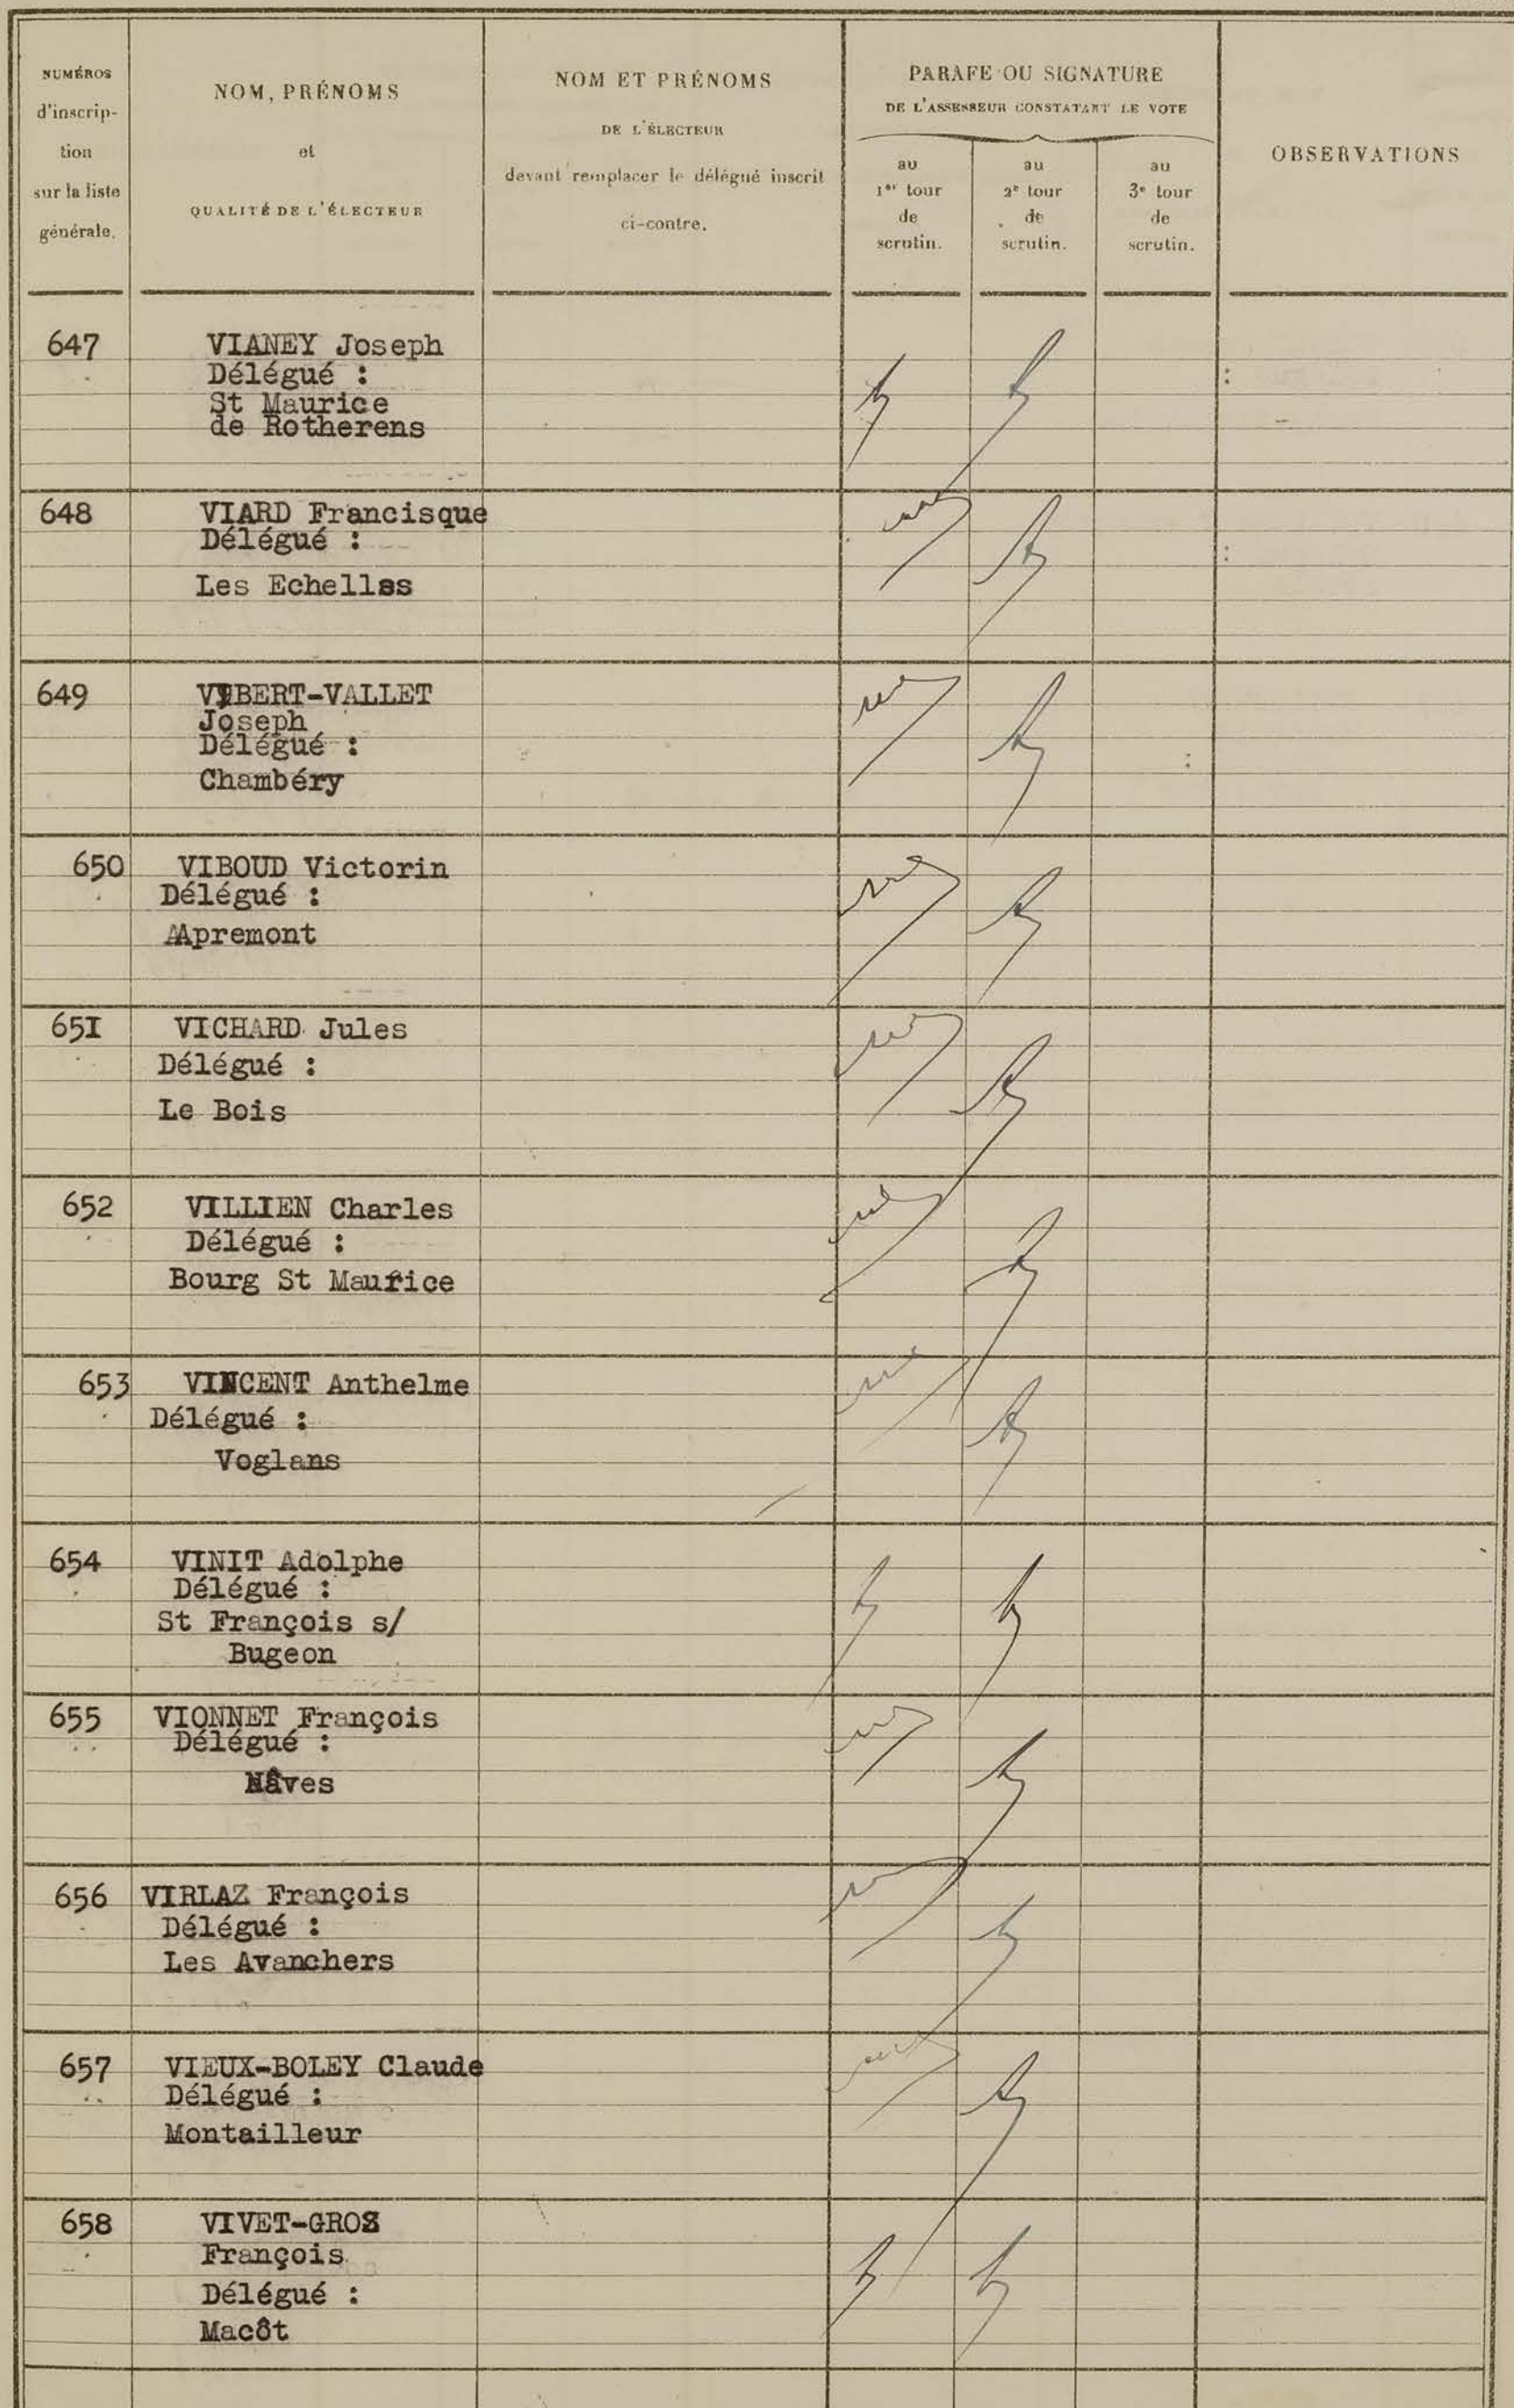 NUMÉROS
d'inscrip-
tion
sur la liste
générale.
NOM, PRÉNOMS
et
QUALITÉ DE L'ÉLECTEUR
NOM ET PRÉNOMS
DE L'ÉLECTEUR
devant remplacer le délégué inscrit
ci-contre.
PARAFE OU SIGNATURE
DE L'ASSESSEUR CONSTATANT LE VOTE
au
1er tour
de
scrutin.
au
2e tour
de
scrutin.
au
3e tour
de
scrutin.
OBSERVATIONS
647 VIANEY Joseph
Délégué :
St Maurice
de Rotherens
648 VIARD Francisque
Délégué :
Les Echelles
649 VIBERT-VALLET
Joseph
Délégué :
Chambéry
650 VIBOUD Victorin
Délégué :
Apremont
65I VICHARD Jules
Délégué :
Le Bois
652 VILLIEN Charles
Délégué :
Bourg St Maurice
653 VINCENT Anthelme
Délégué :
Voglans
654 VINIT Adolphe
Délégué :
St François s/
Bugeon
655 VIONNET François
Délégué :
Nâves
656 VIRLAZ François
Délégué :
Les Avanchers
657 VIEUX-BOLEY Claude
Délégué :
Montailleur
658 VIVET-GROS
François
Délégué :
Macôt